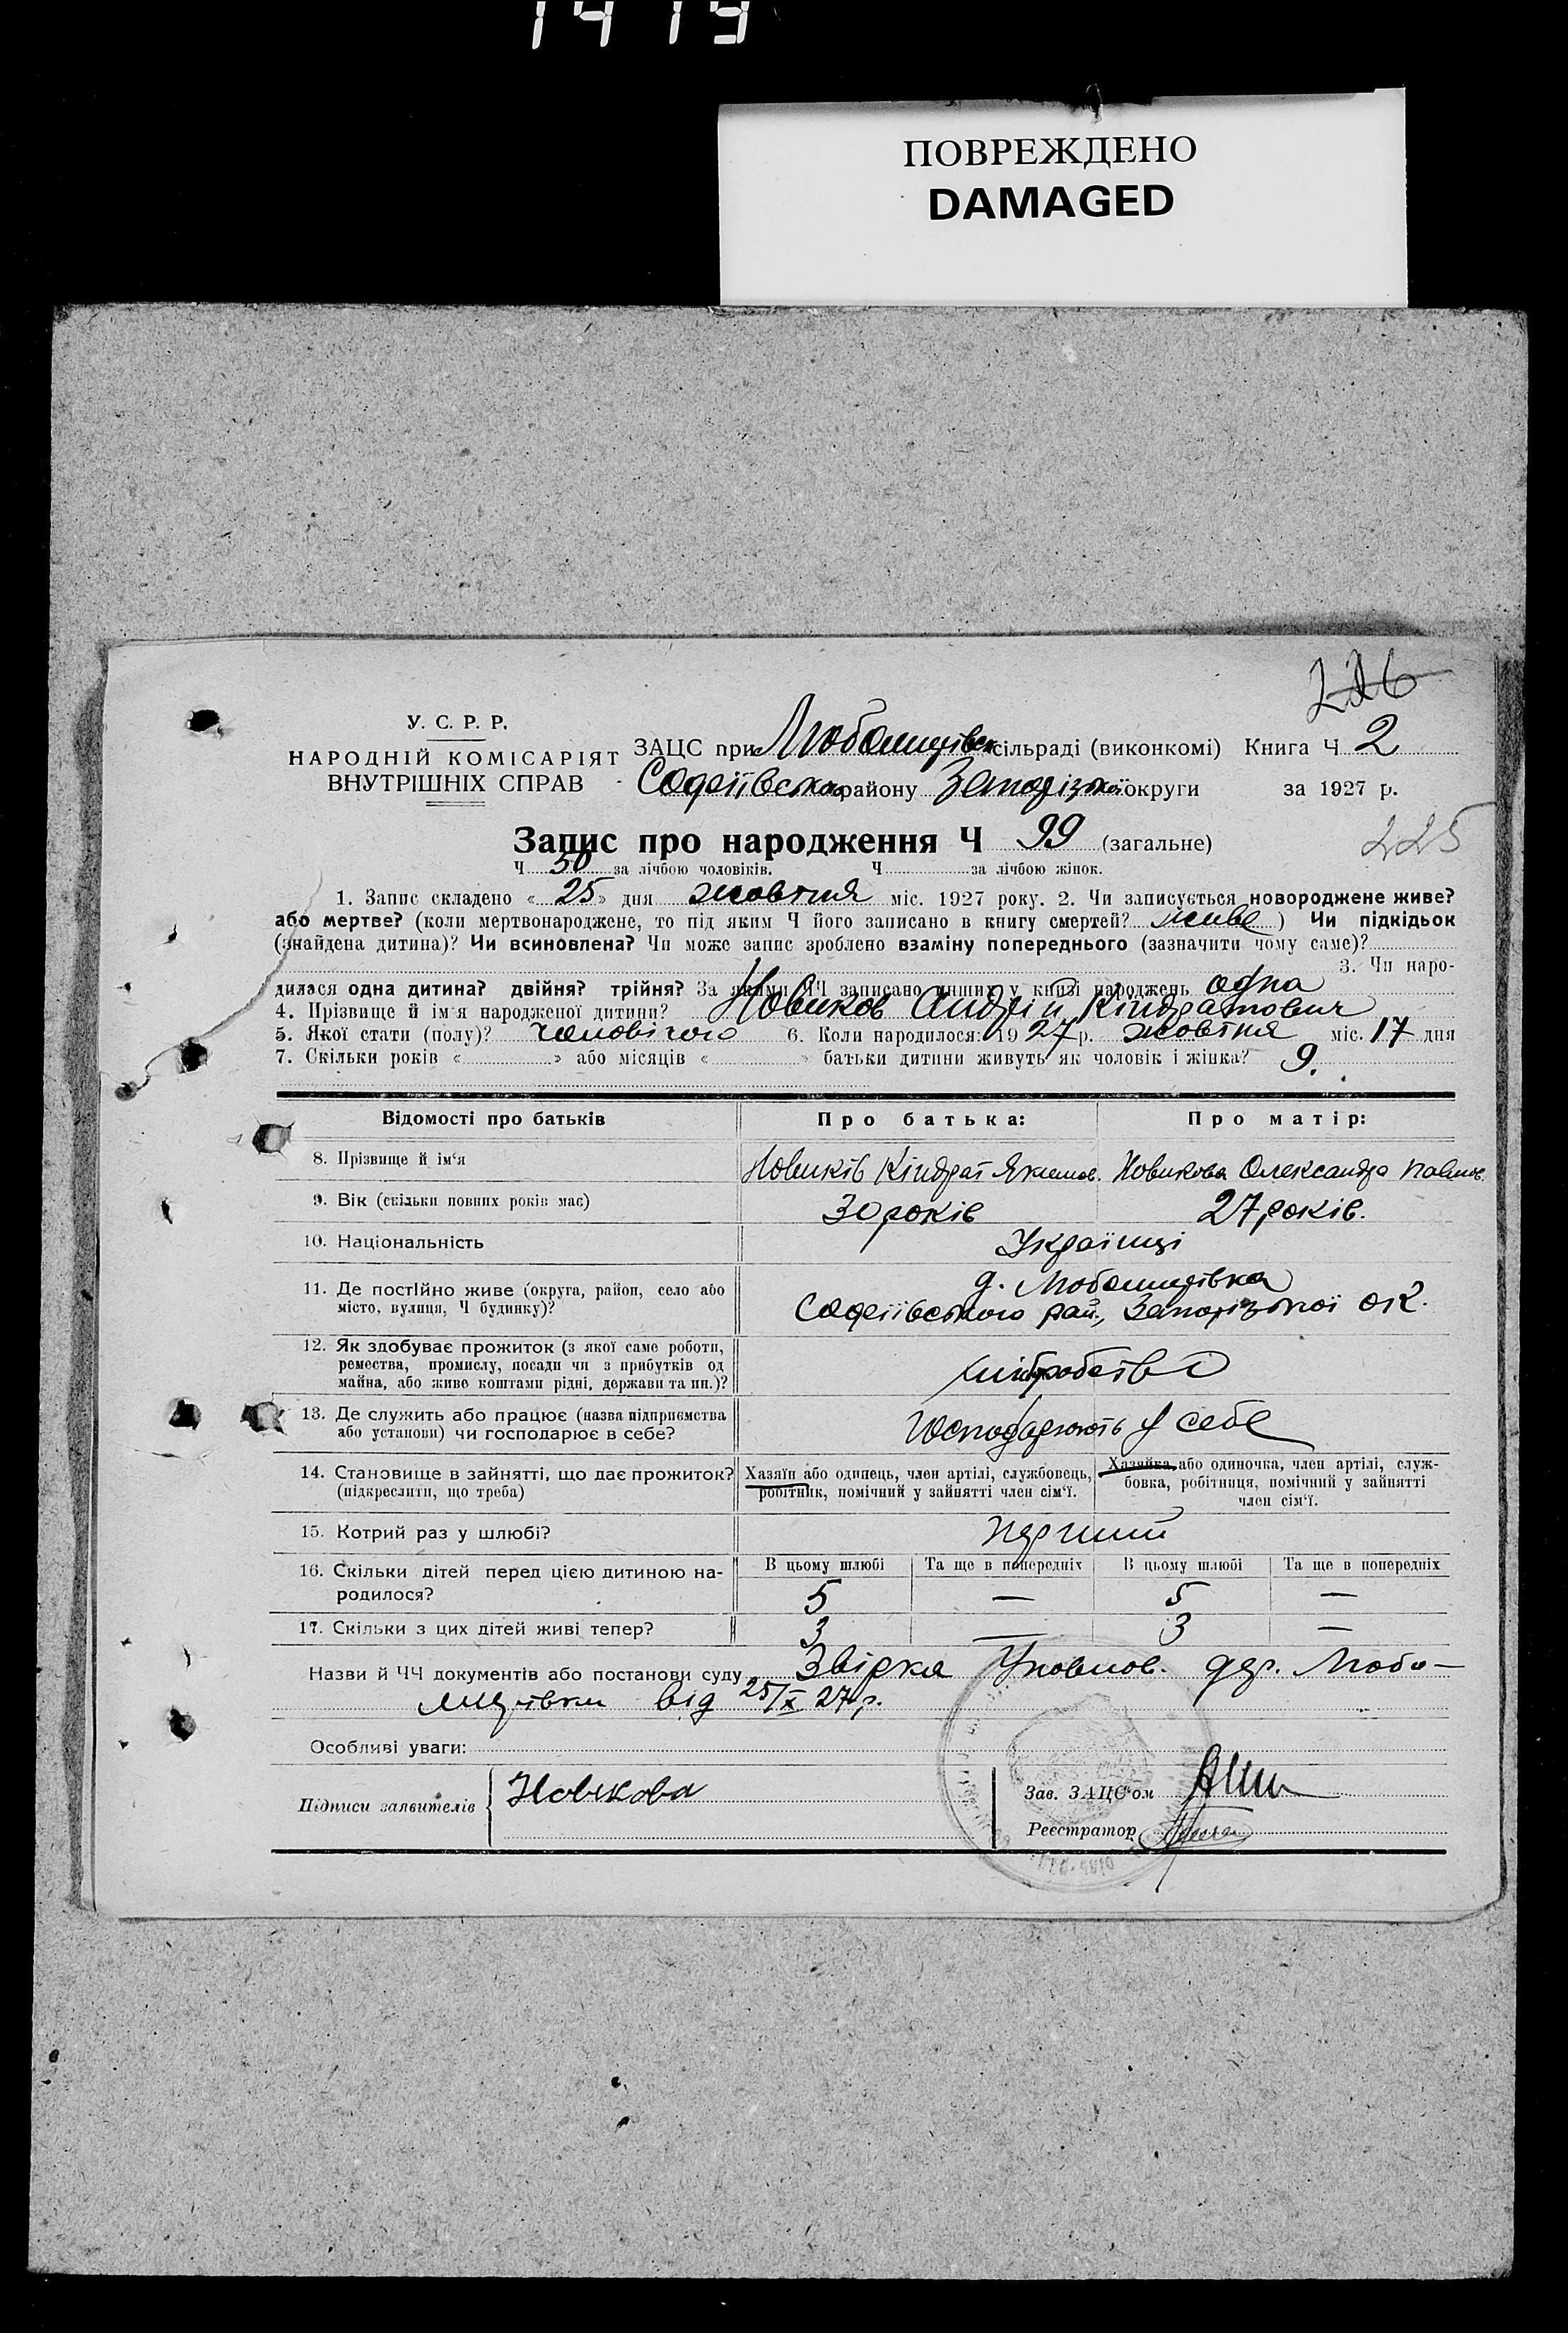 1419
ПОВРЕЖДЕНО
DAMAGED
226
У. С. Р. Р.
НАРОДНІЙ КОМІСАРІЯТ
ВНУТРІШНІХ СПРАВ
ЗАЦС при Любомирівск сільраді (виконкомі) Книга Ч 2
Софіївсько району Запорізької округи за 1927 р.
Запис про народження Ч 99 (загальне)
225
Ч 50 за лічбою чоловіків. Ч за лічбою жінок.
1. Запис складено « 25 » дня жовтня міс. 1927 року. 2. Чи записується новороджене живе?
або мертве? (коли мертвонароджене, то під яким Ч його записано в книгу смертей? живе ) Чи підкідьок
(знайдена дитина)? Чи всиновлена? Чи може запис зроблено взаміну попереднього (зазначити чому саме)?
3. Чи наро-
дилася одна дитина? двійня? трійня? За якими ЧЧ записано инших у книзі народжень одна
4. Прізвище й ім'я народженої дитини? Новиков Андрій Кіндратович
5. Якої стати (полу)? чоловічого 6. Коли народилося: 1927 р. жовтня міс. 17 дня
7. Скільки років « » або місяців « » батьки дитини живуть як чоловік і жінка? 9.
Відомості про батьків Про батька: Про матір:
8. Прізвище й ім'я Новиків Кіндрат Якимов. Новикова Олександра Павлов.
9. Вік (скільки повних років має) 30 років 27 років.
10. Національність Українці
11. Де постійно живе (округа, район, село або
місто, вулиця, Ч будинку)?
д. Любомирівка
Софіївського рай., Запорізької ок.
12. Як здобуває прожиток (з якої саме роботи,
ремества, промислу, посади чи з прибутків од
майна, або живе коштами рідні, держави та ин.)?
хліборобство
13. Де служить або працює (назва підприємства
або установи) чи господарює в себе?
Господарюють у себе
14. Становище в зайнятті, що дає прожиток?
(підкреслити, що треба)
Хазяїн або одинець, член артілі, службовець,
робітник, помічний у зайнятті член сім'ї.
Хазяйка або одиночка, член артілі, служ-
бовка, робітниця, помічний у зайнятті
член сім'ї.
15. Котрий раз у шлюбі? перший
16. Скільки дітей перед цією дитиною на-
родилося?
В цьому шлюбі Та ще в попередніх В цьому шлюбі Та ще в попередніх
5 — 5 —
17. Скільки з цих дітей живі тепер? 3 — 3 —
Назви й ЧЧ документів або постанови суду Звірка Уповнов. дер. Любо-
мирівки від 25/X 27 р.
Особливі уваги:
Підписи заявителів Новкова
Зав. ЗАЦС'ом
Реєстратор